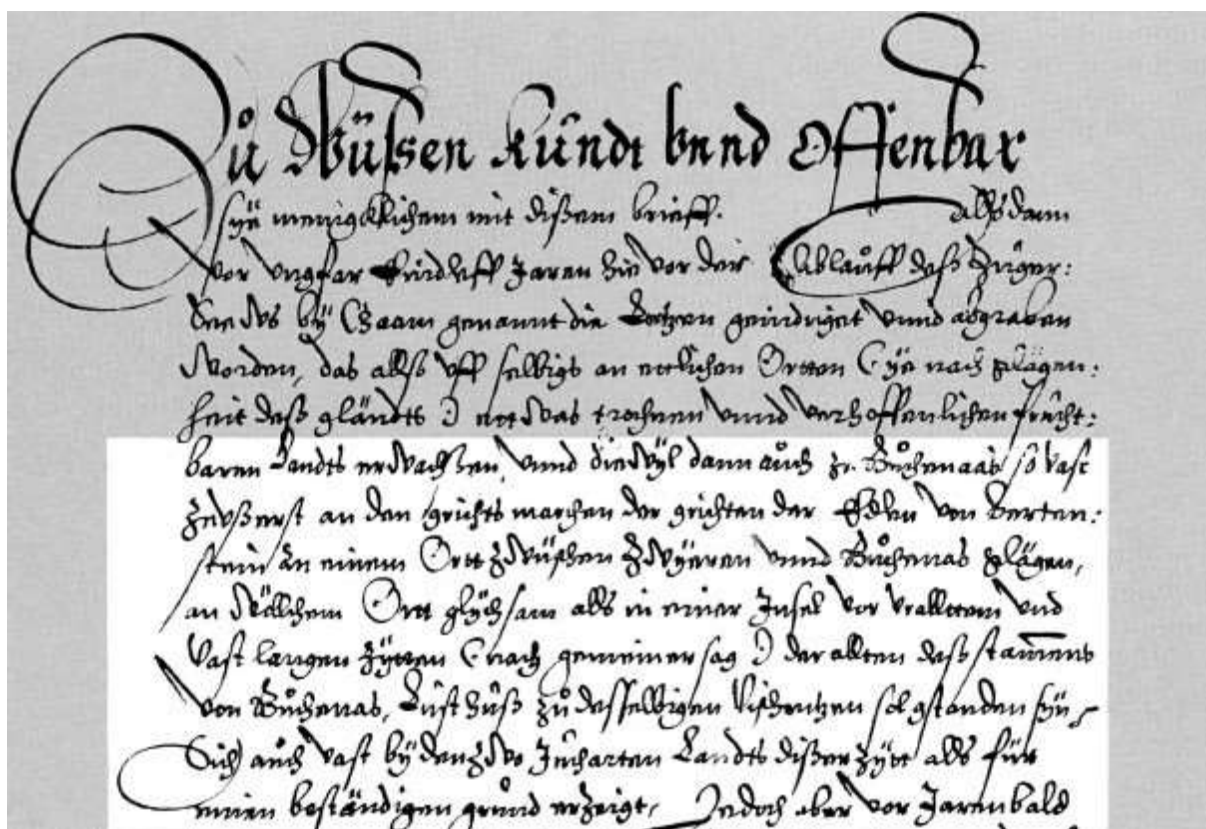 Zů Wüssen kundt vnnd Offenbar
sye mengcklichem mit dißem brieff. alls dann
vor vngfar Jaren hie vor der Ablauff deß Zuger:
See Ws by Chaam genannt die Letzen genidriget vnnd abgraben
worden, das allso vff selbigs an ettlichen Ortten (ye nach glägen:
heit deß gländts) ettwas trochnen vnnd verhoffenlichen frucht:
baren Landts erwachßen, vnnd diewyl dann auch zu Bůchenaas so vast
zeüßerst an den grichts marchen der grichten der Edlen von Berten:
stein an einem Ortt zwüschen Zwyeren vnnd Bůchenas glägen,
an wälchem Ortt glychsam alls in einer Insel vor vralltem vnd
vast langen Zytten (nach gemeiner sag) der allten deß stam̅ens
von Bůchenas, Lusthuß zů desselbigen vischentzen sol gstanden syn,
Sich auch vast by den zwo Jucharten Landts dißer Zytt alls für
einen beständigen grund erzeigt, Jedoch aber vor Jaren bald